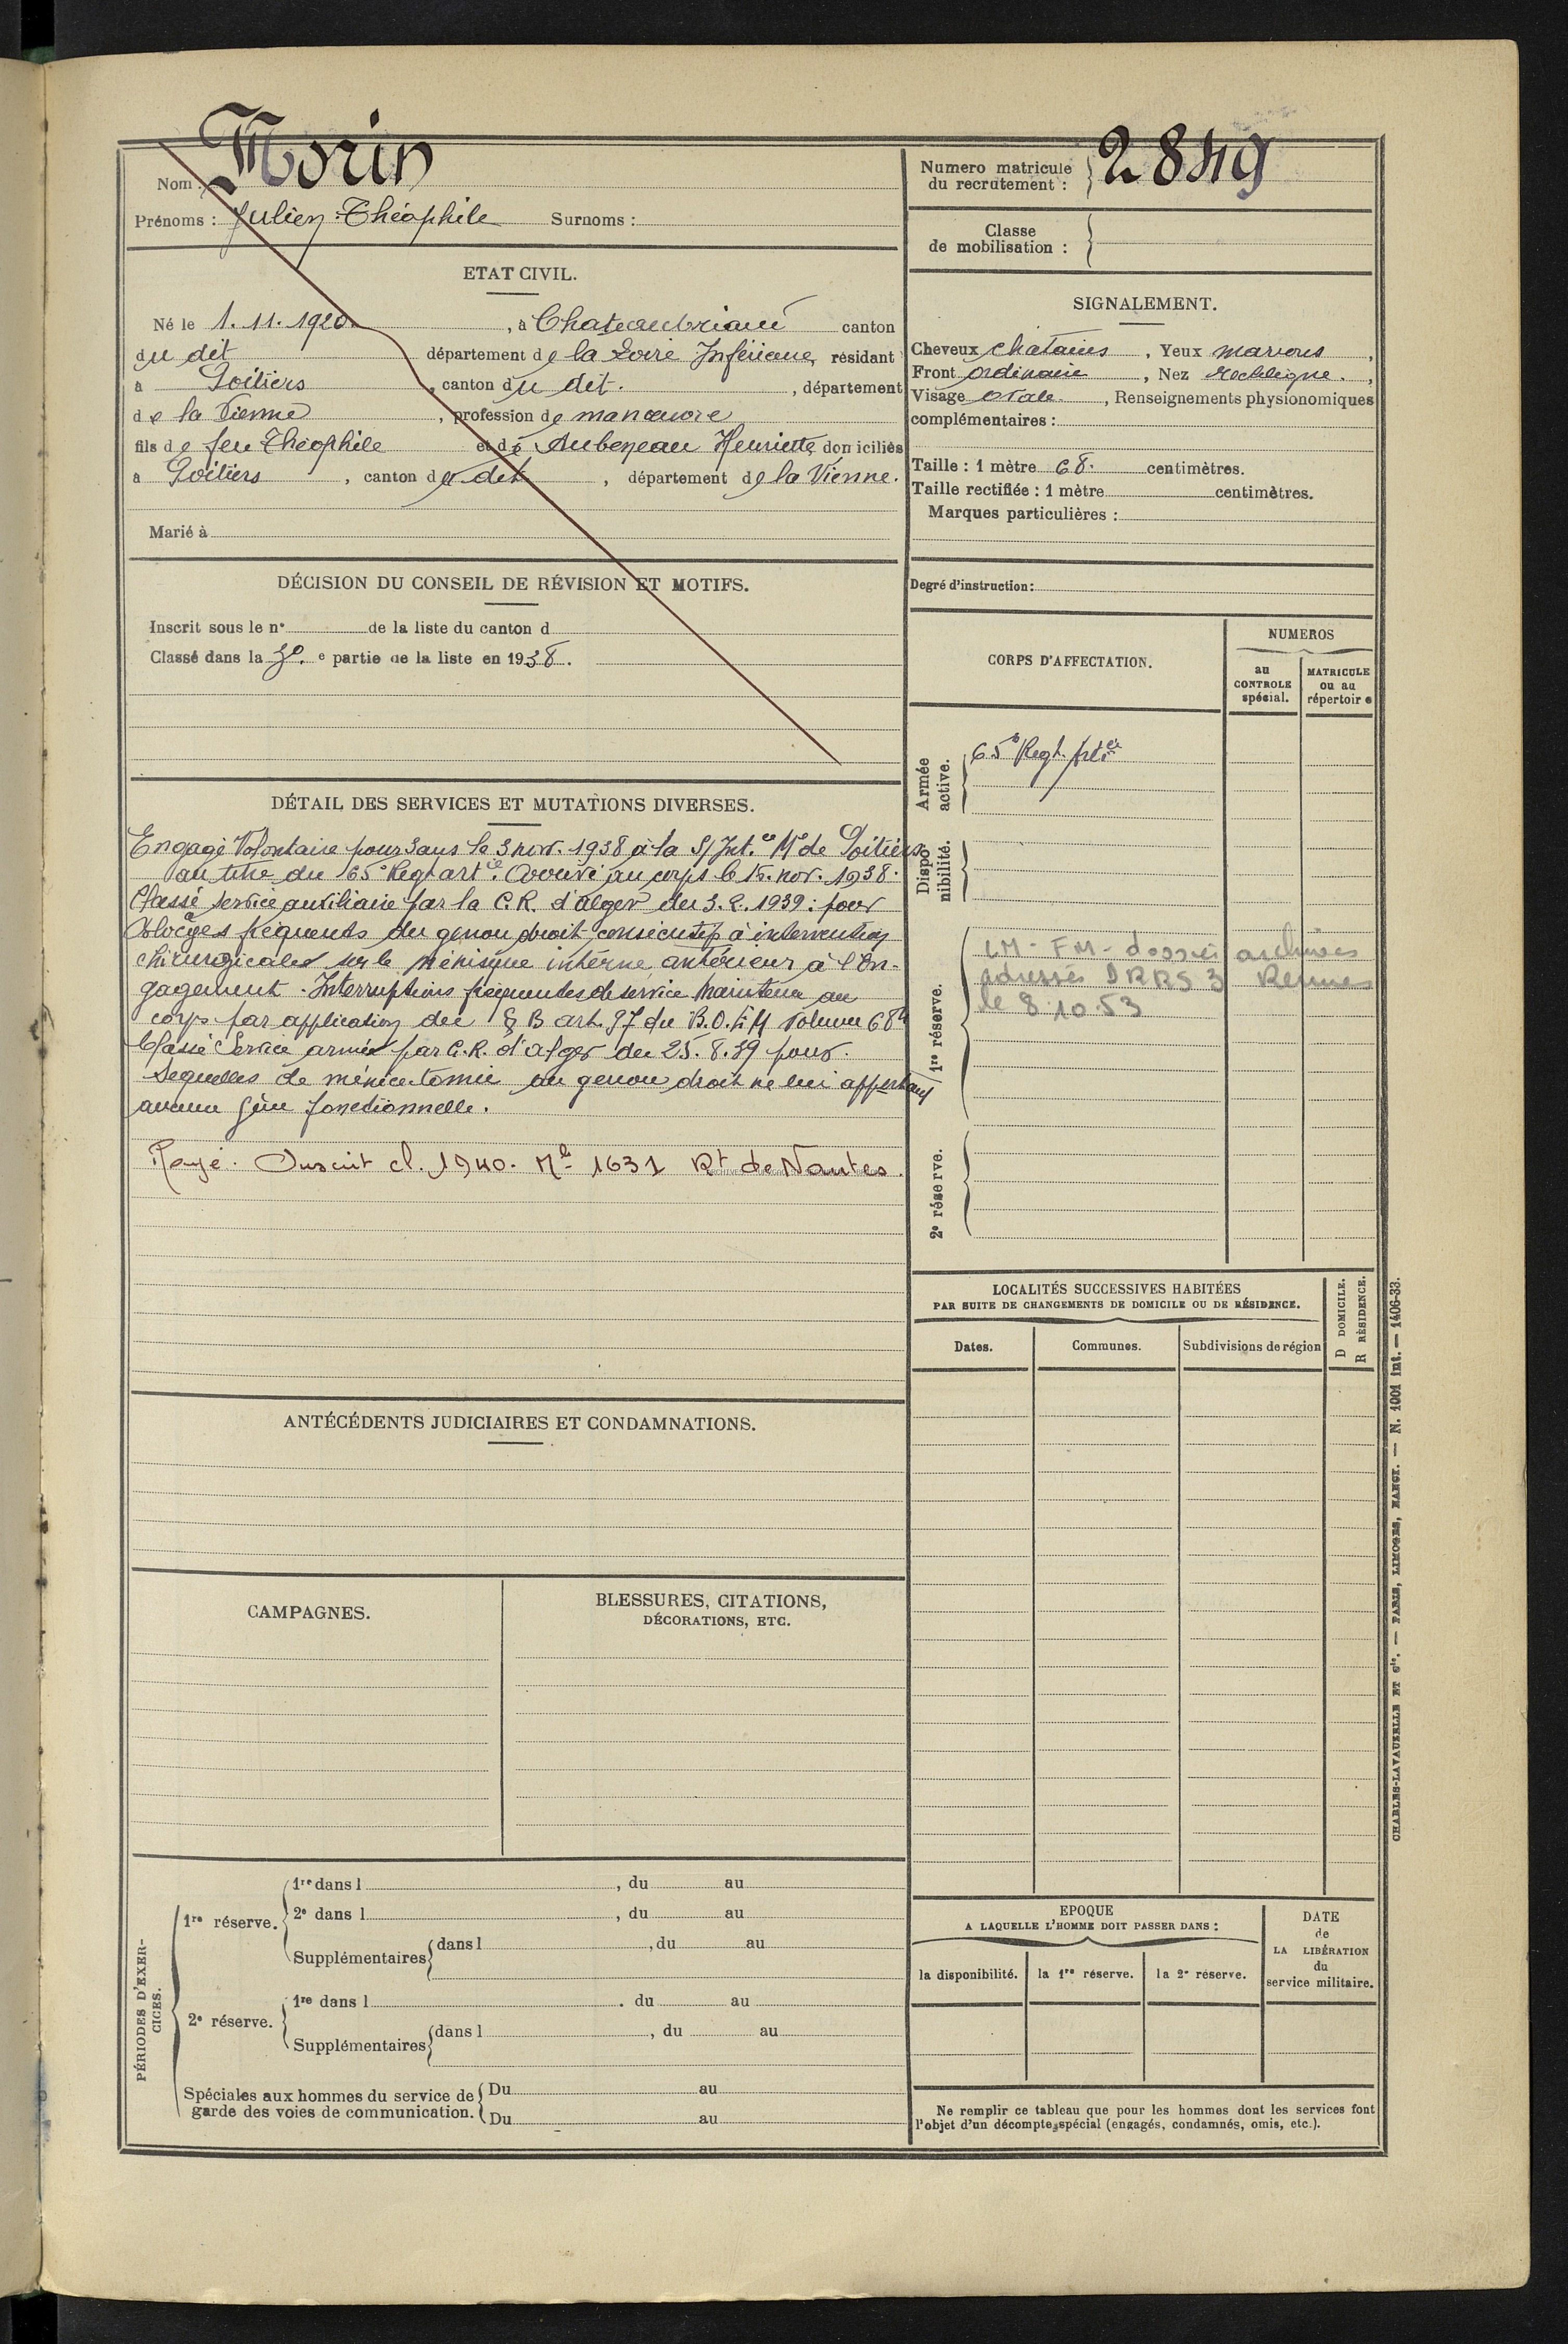 Nom : Morin
Prénoms : Julien Théophile Surnoms :
Numero matricule du recrutement : 2849
Classe de mobilisation :
ETAT CIVIL.
Né le 1.11.1920, à Chateaubriant canton
du dit département de la Loire Inférieure, résidant
à Poitiers, canton du dit., département
de la Vienne, profession de manœuvre
fils de feu Théophile et de Aubeneau Henriette domiciliés
à Poitiers, canton du dit, département de la Vienne.
Marié à
SIGNALEMENT.
Cheveux chatains, Yeux marrons,
Front ordinaire, Nez rectiligne.,
Visage ovale, Renseignements physionomiques
complémentaires :
Taille : 1 mètre 68. centimètres.
Taille rectifiée : 1 mètre centimètres.
Marques particulières :
Degré d'instruction :
DÉCISION DU CONSEIL DE RÉVISION ET MOTIFS.
Inscrit sous le n° de la liste du canton d
Classé dans la 3e. e partie de la liste en 1938.
CORPS D'AFFECTATION.
NUMEROS
au CONTROLE spécial.
MATRICULE ou au répertoire
Armée active.
65e Regt. Artie
Disponibilité.
1re réserve.
LM - FM - dossier archives
adressés DRRS 3 Rennes
le 8.10.53
2e réserve.
DÉTAIL DES SERVICES ET MUTATIONS DIVERSES.
Engagé Volontaire pour 3 ans le 3 nov. 1938 à la S/Int.ce Mre de Poitiers
au titre du 65e Regt artie. Arrivé au corps le 15. nov. 1938.
Classé service auxiliaire par la C.R. d'Alger du 3.2.1939 : pour
blocages fréquents du genou droit consécutifs à intervention
chirurgicales sur le ménisque interne, antérieur à l'En-
gagement. Interruptions fréquentes de service Maintenu au
corps par application du § B art. 97 du B.O.E.M volume 68
Classé Service armée par C.R. d'Alger du 25.8.39 pour.
Sequelles de ménicectomie au genou droit ne lui apportant
aucune gêne fonctionnelle.
Rayé. Inscrit cl. 1940. Mle 1631 Rt de Nantes.
LOCALITÉS SUCCESSIVES HABITÉES
PAR SUITE DE CHANGEMENTS DE DOMICILE OU DE RÉSIDENCE.
Dates. Communes. Subdivisions de région
D DOMICILE.
R RÉSIDENCE.
ANTÉCÉDENTS JUDICIAIRES ET CONDAMNATIONS.
CAMPAGNES.
BLESSURES, CITATIONS,
DÉCORATIONS, ETC.
PÉRIODES D'EXERCICES.
1re réserve.
1re dans l , du au
2e dans l , du au
Supplémentaires dans l , du au
2e réserve.
1re dans l . du au
Supplémentaires dans l , du au
Spéciales aux hommes du service de garde des voies de communication.
Du au
Du au
EPOQUE
A LAQUELLE L'HOMME DOIT PASSER DANS :
la disponibilité. la 1re réserve. la 2e réserve.
DATE
de
LA LIBÉRATION
du
service militaire.
Ne remplir ce tableau que pour les hommes dont les services font
l'objet d'un décompte spécial (engagés, condamnés, omis, etc.).
CHARLES-LAVAUZELLE ET Cie. — PARIS, LIMOGES, NANCY. — N. 1001 int. — 1406-33.